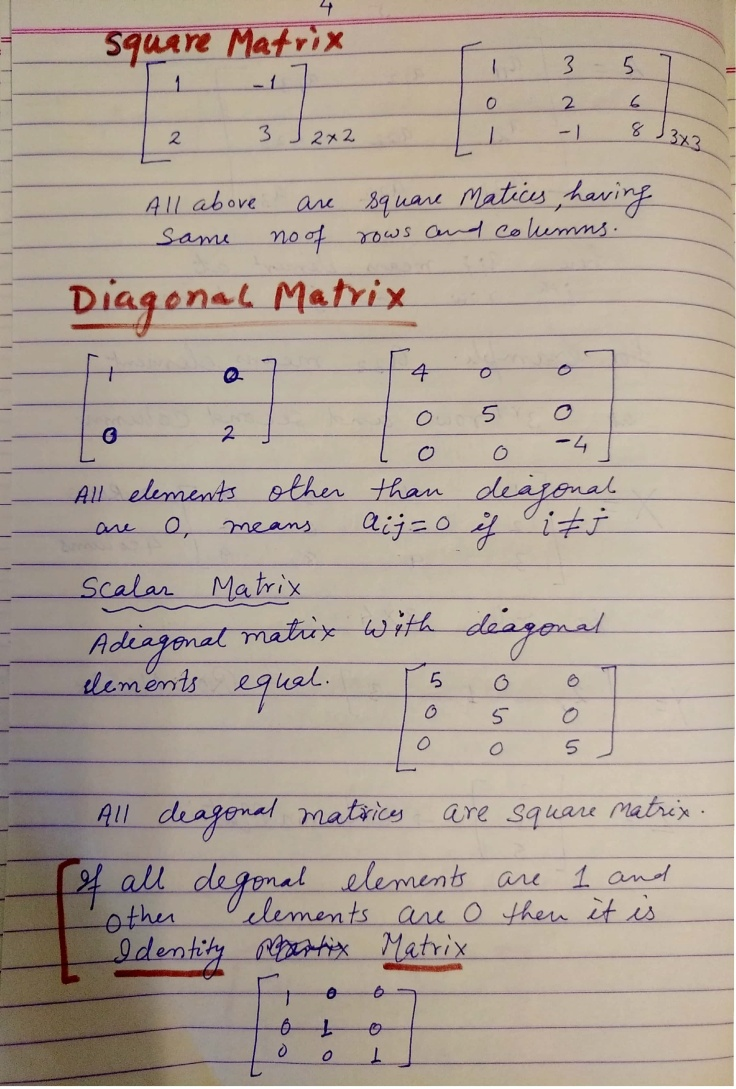 4
Square Matrix
1 -1
2 3 2×2
1 3 5
0 2 6
1 -1 8 3×3
All above are square Matices, having
same no of rows and columns.
Diagonal Matrix
1 0
0 2
4 0 0
0 5 0
0 0 -4
All elements other than deagonal
are 0, means aij=0 if i≠j
Scalar Matrix
A deagonal matrix with deagonal
elements equal.
5 0 0
0 5 0
0 0 5
All deagonal matrices are square matrix.
If all degonal elements are 1 and
other elements are 0 then it is
Identity Matrix
1 0 0
0 1 0
0 0 1